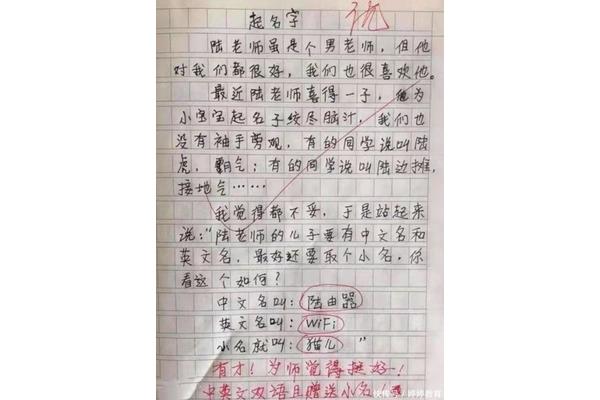 起名字
优
陆老师虽是个男老师，但他
对我们都很好，我们也很喜欢他。
最近陆老师喜得一子，他为
小宝宝起名子绞尽脑汁，我们也
没有袖手剪观，有的同学说叫陆
虎，霸气；有的同学说叫陆边摊，
接地气……
我觉得都不妥，于是站起来
说："陆老师的儿子要有中文名和
英文名，最好还要取个小名，你
看这个如何？
中文名叫：陆由器
英文名叫：WiFi
小名就叫：猫儿 "
有才！为师觉得挺好！
中英文双语且赠送小名！